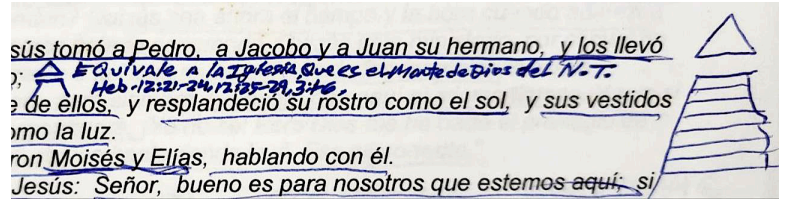 sús tomó a Pedro, a Jacobo y a Juan su hermano, y los llevó
o; Equivale a la Iglesia que es el Monte de Dios del N.T.
Heb-12:21-24, 12:25-29, 3:1-6,
e de ellos, y resplandeció su rostro como el sol, y sus vestidos
omo la luz.
ron Moisés y Elías, hablando con él.
Jesús: Señor, bueno es para nosotros que estemos aquí; si